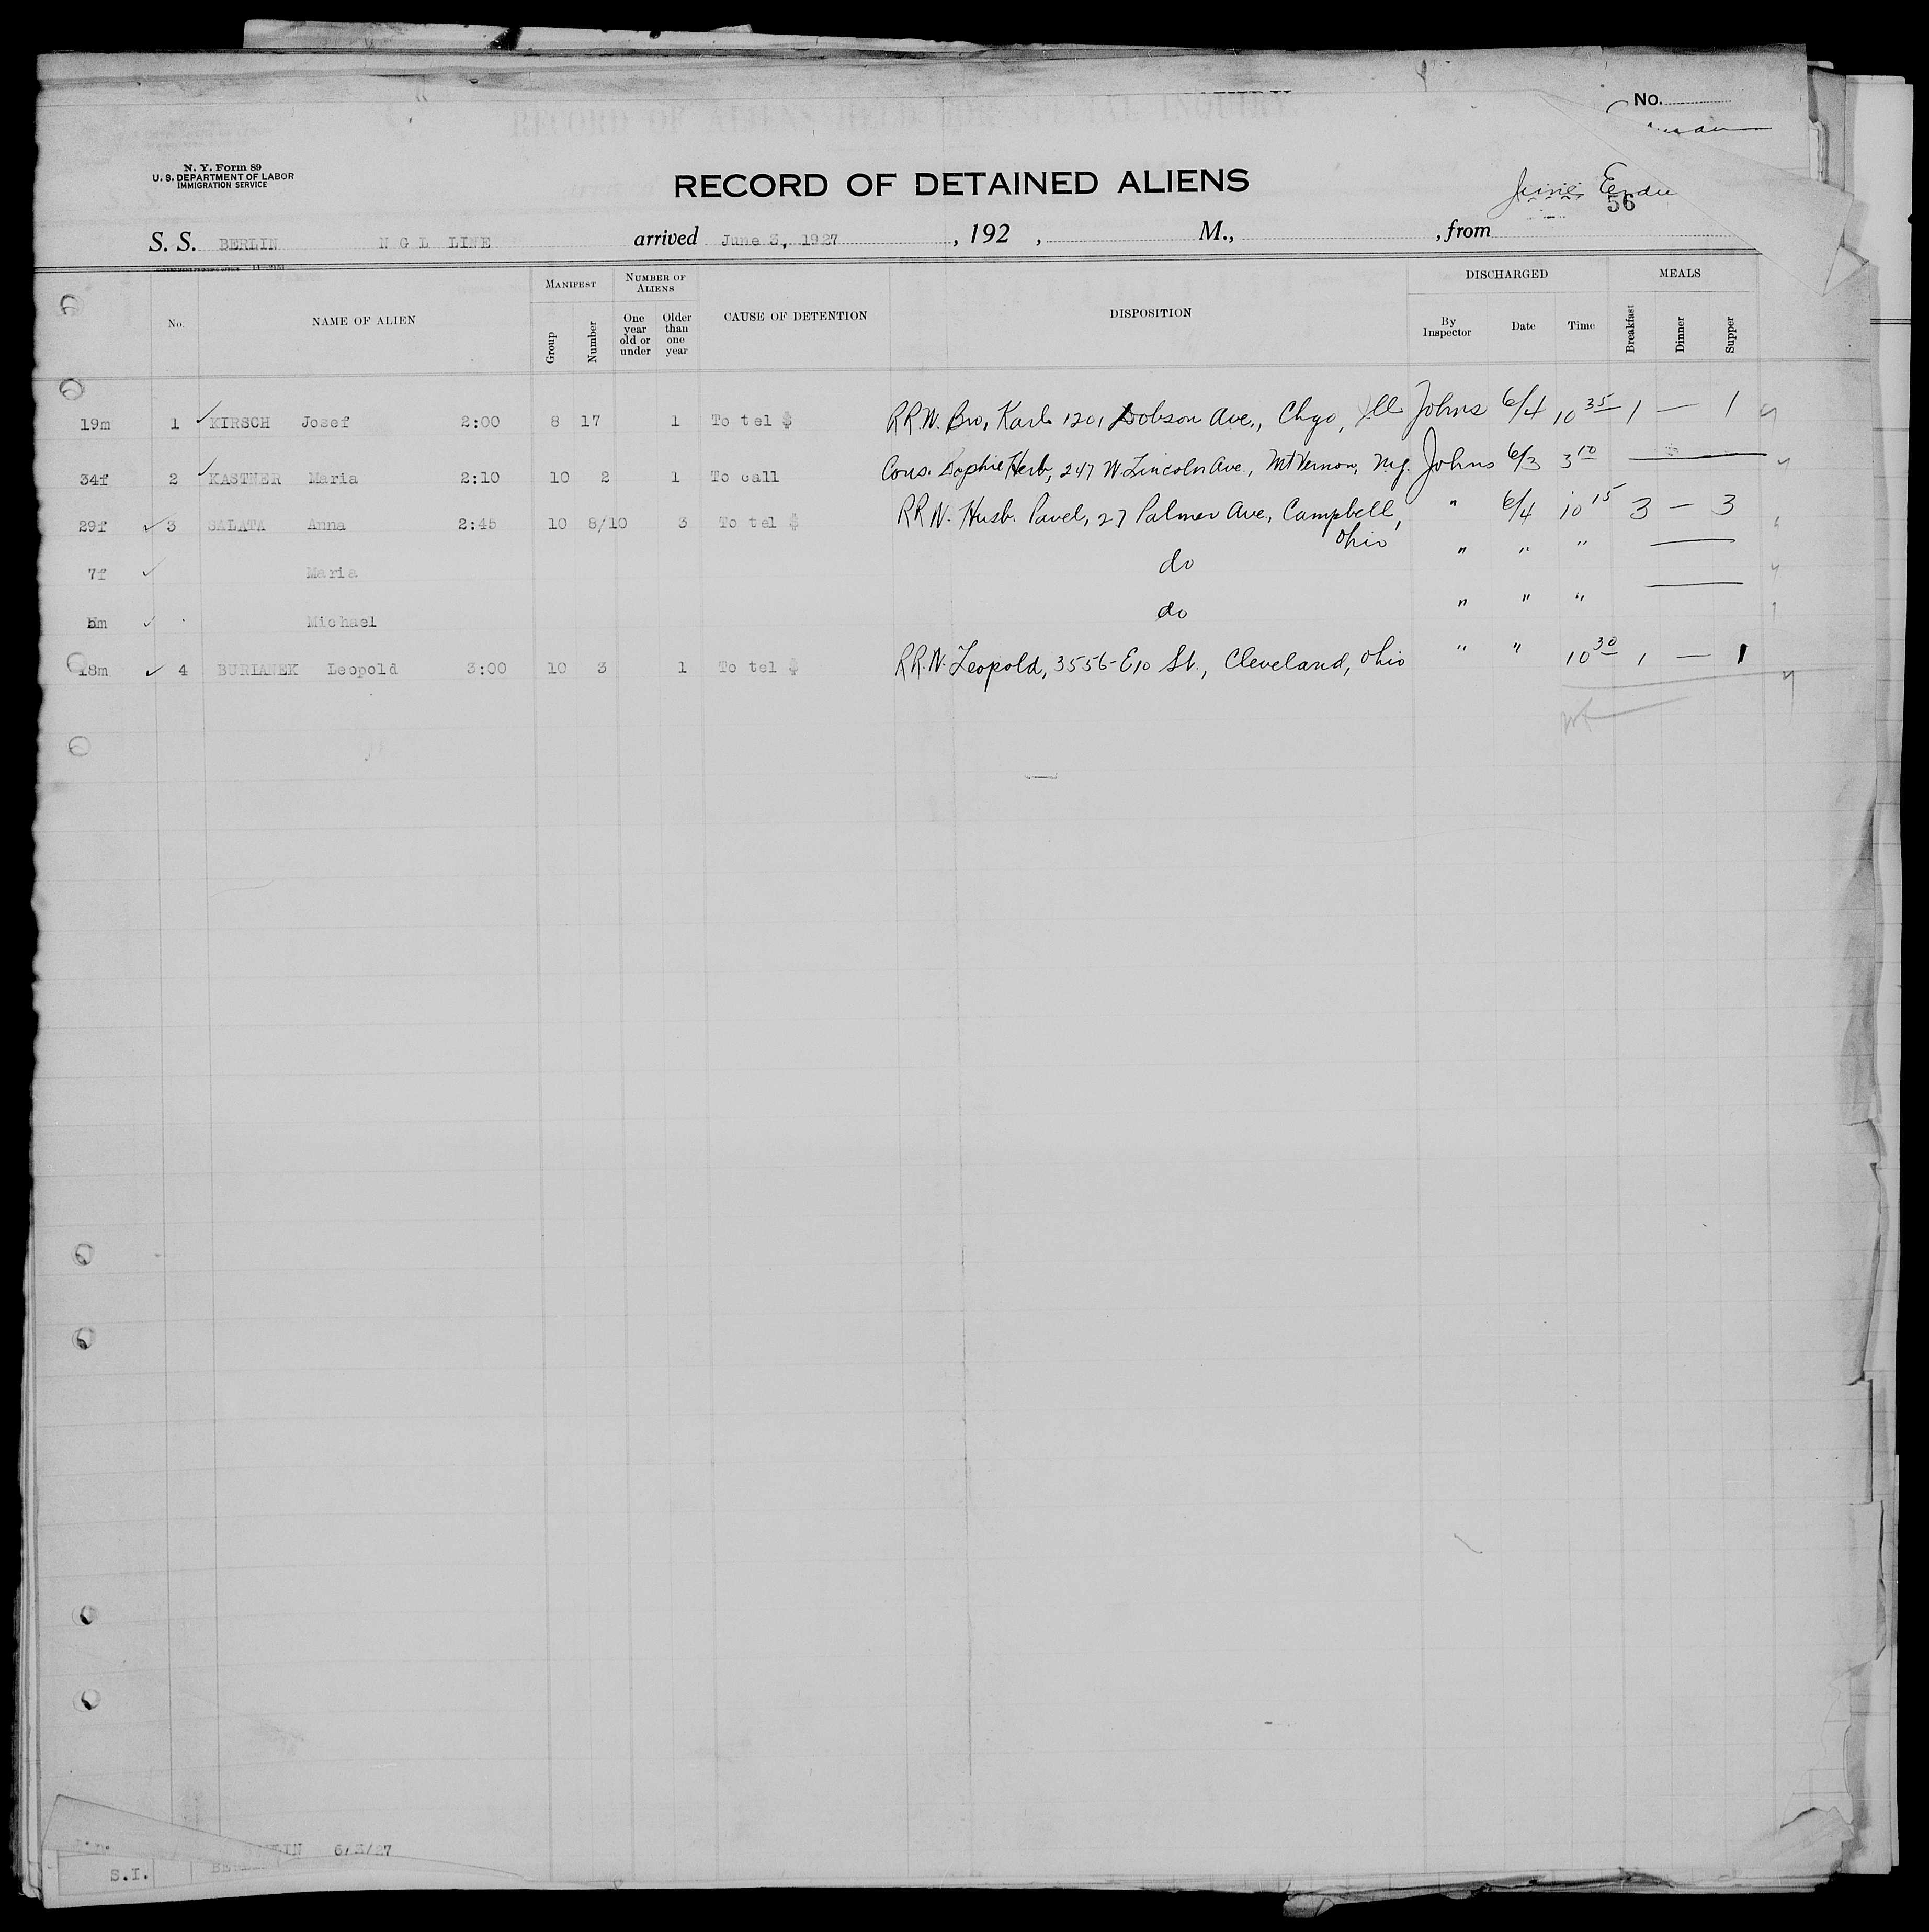 No.
N. Y. Form 89
U. S. DEPARTMENT OF LABOR
IMMIGRATION SERVICE
RECORD OF DETAINED ALIENS
June
56
S. S. BERLIN N G L LINE arrived June 3, 1927, 192 , M., , from
MANIFEST NUMBER OF ALIENS DISCHARGED MEALS
No. NAME OF ALIEN Group Number One year old or under Older than one year CAUSE OF DETENTION DISPOSITION By Inspector Date Time Breakfast Dinner Supper
19m 1 ✓ KIRSCH Josef 2:00 8 17 1 To tel $ RRN. Bro, Karl 1201 Dobson Ave., Chgo, Ill Johns 6/4 10 35 1 — 1
34f 2 ✓ KASTNER Maria 2:10 10 2 1 To call Cous. Sophie Herb, 247 W. Lincoln Ave., Mt Vernon, N.Y. Johns 6/3 3 10 —
29f ✓ 3 SALATA Anna 2:45 10 8/10 3 To tel $ RRN. Husb. Pavel, 27 Palmer Ave, Campbell, " 6/4 10 15 3 — 3
Ohio
7f ✓ Maria do " " " —
5m ✓ Michael do " " " —
18m ✓ 4 BURIANEK Leopold 3:00 10 3 1 To tel $ R.R.N. Leopold, 3556-E 10 St., Cleveland, Ohio " " 10 30 1 — 1
LIN 6/3/27
S.I.